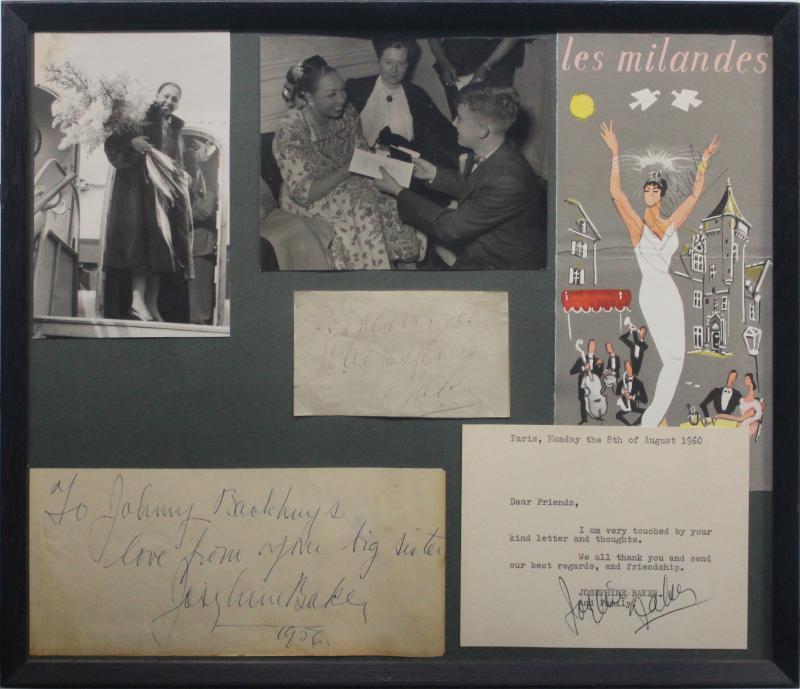 les milandes
Paris, Monday the 8th of August 1960
Dear Friends,
I am very touched by your
kind letter and thoughts.
We all thank you and send
our best regards, and friendship.
JOSEPHINE BAKER
and Family
Josephine Baker
To Johnny Backhuys
love from your big sister
Josephine Baker
1956.